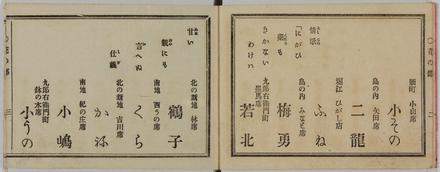 堀町 小山席
小その
島の内 矢田席
二龍
情界
堀江 ひがし店
ふね
「にがひ
薬も
島の内 みなと席
梅勇
きかない
わけハ
九郎右衛門町
若北
甘い
北の新地 林席
鶴子
親にも
南地 西うの席
くら
言へぬ
北の新地 吉川席
かね
仕儀
南地 紀の庄席
小嶋
九郎右衛門町
鉢の木席
小うの
二
三